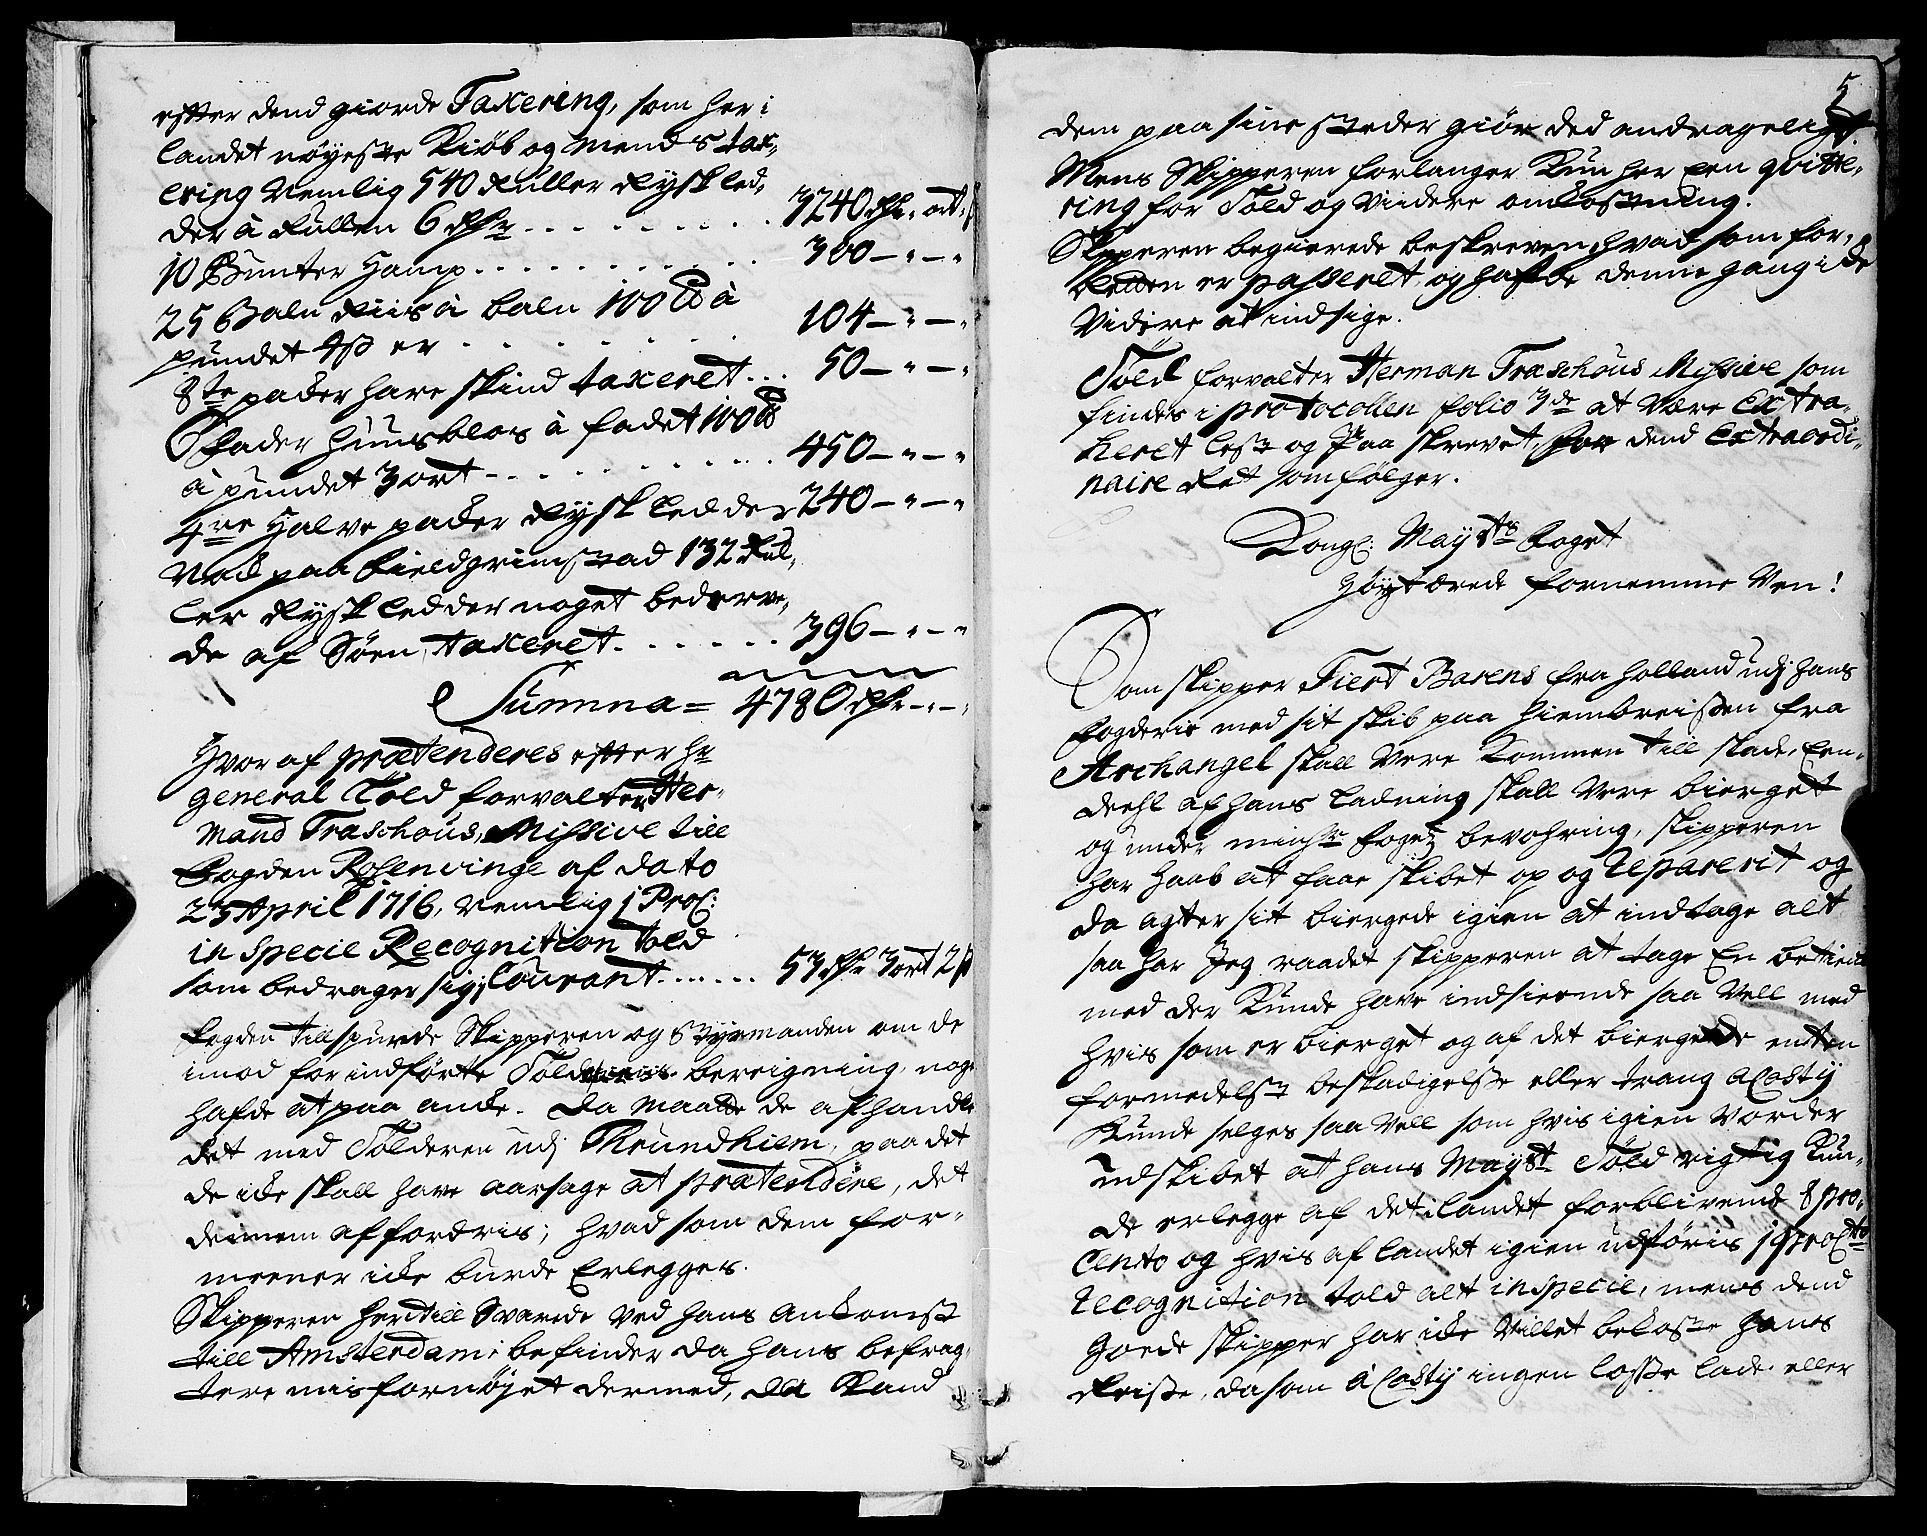 efter dend giorde Taxering, som her i
landet nøyeste Kiøb og Mends tax,
ering Nemlig 540 Ruller Rysk led,
der à Rullen 6 Rdr . . . . . . . . . 3240 Rdr " ort "
10 Bunter Hamp . . . . . . . . . . . 300 – " – "
25 Baln Riis à baln 100 ℔ à
pundet 4 ß er . . . . . . . . . 104 – " – "
8te packer hare skind taxeret . . . 50 – " – "
6 Fader Huusblas à fadet 100 ℔
à pundet 3 ort . . . . . . . . . . 450 – " – "
4re Halve packer Rysk ledder 240 – " – "
Nock paa Fieldgrimstad 132 Rul,
ler Rysk ledder noget bederve,
de af Søen, taxeret . . . . . . . 396 – " – "
Summa = 4780 Rdr – " – "
Hvor af prætenderes efter Hr
General Told forvalter Her,
mand Traschous, Missive till
Fogden Rosenvinge af dato
23 April 1716, Nemlig 1 Proc:
in specie Recognition told
som bedrager sig, Courant . . . . . . 53 Rdr 3 ort 2 ß
Fogden tillspurde Skipperen og Styrmanden om de
imod for indførte Told bereigning, noge
hafde at paa ancke. Da maatte de afhandle
det med Tolderen udj Thrundhiem, paa det
de icke skall have aarsage at prætendere, det
dennem affordris; hvad som dem for,
meener icke burde Erlegges.
Skipperen hertill Svarede ved hans Ankomst
till Amsterdam, befinder da hans befrag,
tere misfornøjet dermed, da Kand
5
dem paa sine steder giøre ded andrageligt
Mens Skipperen forlanger Kun her een qvitte,
ring for Told og Viidere omkostning.
Skipperen begierede beskreven, hvad som for,
Retten er passeret, og hafde denne gang icke
Vidire at indsige.
Told forvalter Herman Traschous Missive som
findes i protocollen folio 3de at være Extra,
heret lest og Paa skrevet, for dend Extraordi,
naire Ret som følger.
Kongl: Mayts Foget
Høytærede fornemme Ven!
Som skipper Tiert Barens fra Holland udj hans
fogderie med sit skib paa hiembreisen fra
Archangel skall være kommen till skade, Een,
deehl af hans ladning skall være bierget
og under Fogetz bevahring, skipperen
har haab at faae skibet op og reparerit og
da agter sit biergede igien at indtage alt
saa har Jeg raadet skipperen at tage En betient
med der Kunde have indseende saa vell med
hvis som er bierget og af det biergede enten
formedelst beskadigelse eller trang à Costij
Kunde selges saa vell som hvis igien vorder
udskibet at hans Mayst Told rigtig Kun,
de erlegge af det i landet forblivende 8 pro,
cento og hvis af landet igien udføris 1 procto
recognition told alt in specie, mens dend
goede skipper har icke villet bekoste hans
Reise, da som à Costij ingen losse lade eller